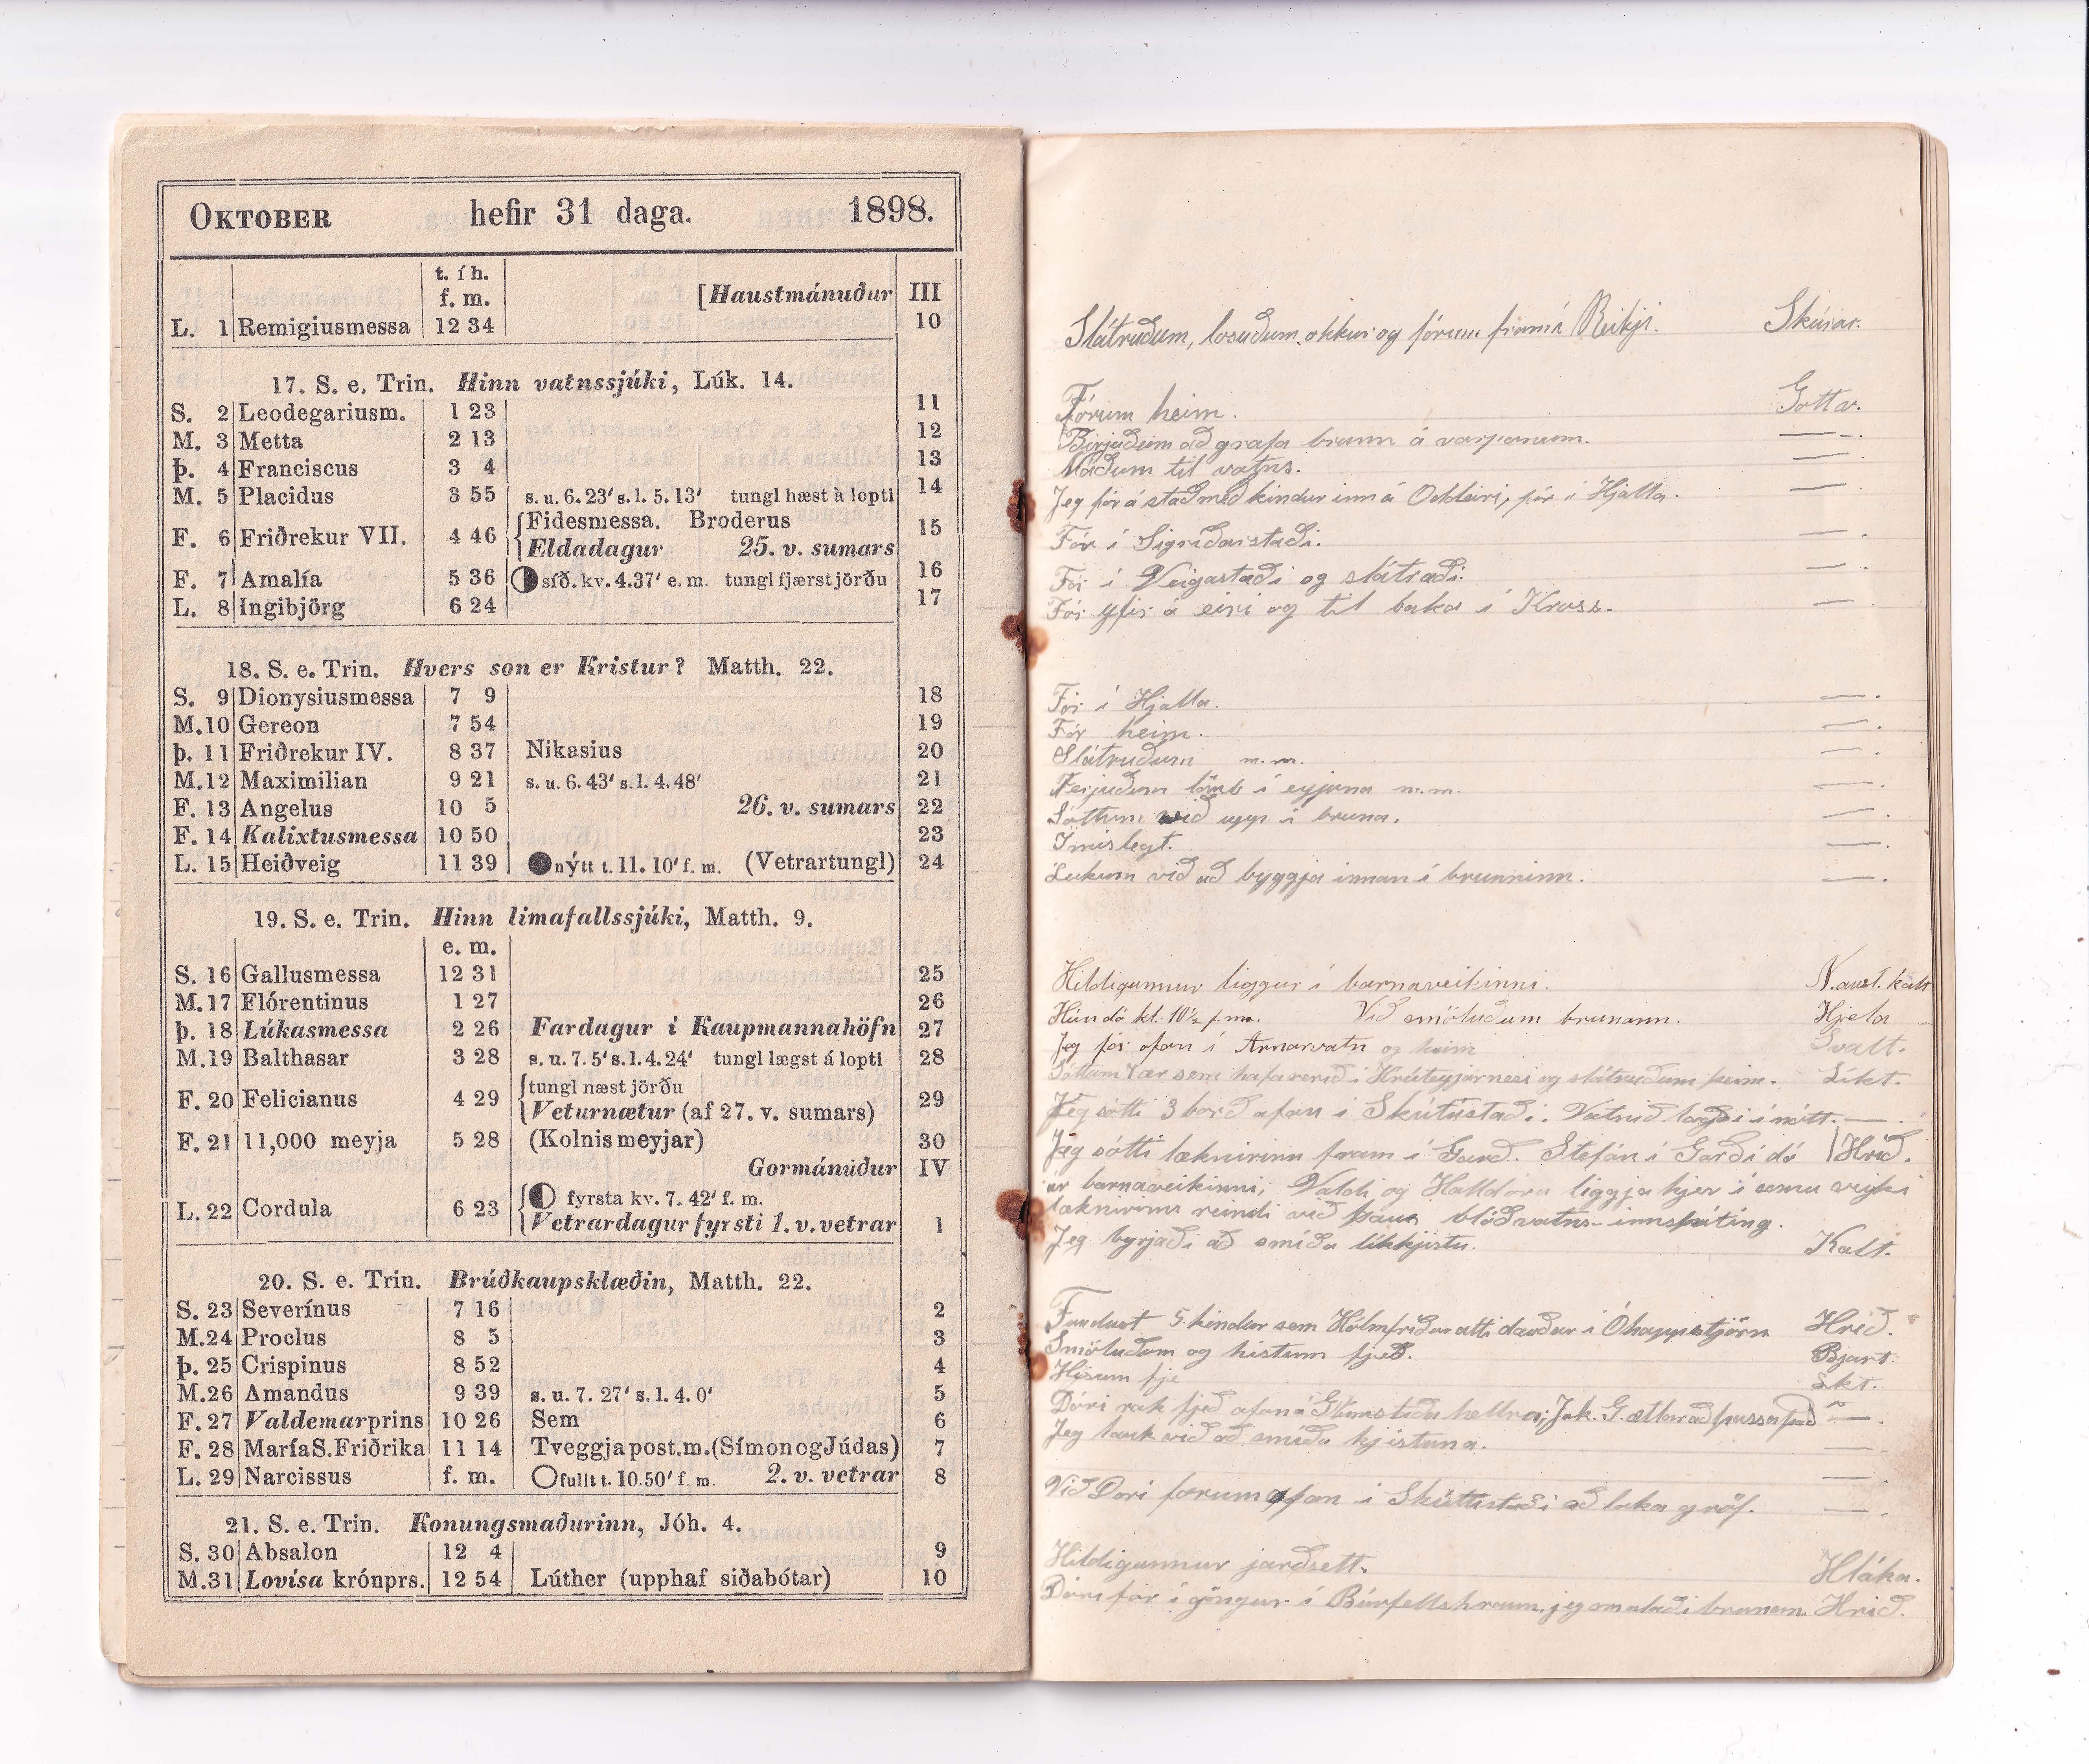 OKTOBER hefir 31 daga. 1898.
t. í h.
f. m. [Haustmánuður III
L. 1 Remigiusmessa 12 34 10
17. S. e. Trin. Hinn vatnssjúki, Lúk. 14.
S. 2 Leodegariusm. 1 23 11
M. 3 Metta 2 13 12
Þ. 4 Franciscus 3 4 13
M. 5 Placidus 3 55 s. u. 6. 23' s. l. 5. 13' tungl hæst à lopti 14
F. 6 Friðrekur VII. 4 46 Fidesmessa. Broderus 15
Eldadagur 25. v. sumars
F. 7 Amalía 5 36 síð. kv. 4.37' e. m. tungl fjærst jörðu 16
L. 8 Ingibjörg 6 24 17
18. S. e. Trin. Hvers son er Kristur? Matth. 22.
S. 9 Dionysiusmessa 7 9 18
M. 10 Gereon 7 54 19
Þ. 11 Friðrekur IV. 8 37 Nikasius 20
M. 12 Maximilian 9 21 s. u. 6. 43' s. l. 4. 48' 21
F. 13 Angelus 10 5 26. v. sumars 22
F. 14 Kalixtusmessa 10 50 23
L. 15 Heiðveig 11 39 nýtt t. 11. 10' f. m. (Vetrartungl) 24
19. S. e. Trin. Hinn limafallssjúki, Matth. 9.
e. m.
S. 16 Gallusmessa 12 31 25
M. 17 Flórentinus 1 27 26
Þ. 18 Lúkasmessa 2 26 Fardagur í Kaupmannahöfn 27
M. 19 Balthasar 3 28 s. u. 7. 5' s. l. 4. 24' tungl lægst á lopti 28
F. 20 Felicianus 4 29 tungl næst jörðu 29
Veturnætur (af 27. v. sumars)
F. 21 11,000 meyja 5 28 (Kolnis meyjar) 30
Gormánuður IV
L. 22 Cordula 6 23 fyrsta kv. 7. 42' f. m.
Vetrardagur fyrsti 1. v. vetrar 1
20. S. e. Trin. Brúðkaupsklæðin, Matth. 22.
S. 23 Severínus 7 16 2
M. 24 Proclus 8 5 3
Þ. 25 Crispinus 8 52 4
M. 26 Amandus 9 39 s. u. 7. 27' s. l. 4. 0' 5
F. 27 Valdemar prins 10 26 Sem 6
F. 28 María S. Friðrika 11 14 Tveggja post. m. (Símon og Júdas) 7
L. 29 Narcissus f. m. fullt t. 10.50' f. m. 2. v. vetrar 8
21. S. e. Trin. Konungsmaðurinn, Jóh. 4.
S. 30 Absalon 12 4 9
M. 31 Lovísa krónprs. 12 54 Lúther (upphaf siðabótar) 10
Slátruðum, losuðum okkur og fórum fram í Reiki. Skúrar.
Fórum heim. Gottv.
Birjuðum að grafa brunn á varpanum. —
Náðum til vatns. —
Jeg fór á stað með kindur inn á Oddeiri, fór í Hjalla. —
Fór í Sigríðarstaði. —
Fór í Veigastaði og slátraði. —
Fór yfir á eiri og til baka í Kross. —
Fór í Hjalla. —
Fór heim. —
Slátruðum m. m. —
Ferjuðum lömb í eyjarna m. m. —
Sóttum við upp í bruna. —
Ímislegt. —
Lukum við að byggja innan í brunninn. —
Hildigunnur liggur í barnaveikinni. N. aust. kalt
Hún dó kl. 10½ f. m. Við smöluðum brunann. Hjela
Jeg fór ofan í Arnarvatn og heim Svalt.
Sóttum ær sem hafa verið í Hrúteyjarnesi og slátruðum þeim. Líkt.
Jeg sótti 3 borð ofan í Skútustaði. Vatnið lagði í nótt. —
Jeg sótti læknirinn fram í Garð. Stefán í Garði dó Hríð.
úr barnaveikinni; Valdi og Halldóra liggja hjer í sömu veiki
læknirinn reindi við þaug blóðvatns-innspíting.
Jeg byrjaði að smíða líkkjistu. Kalt.
Fundust 5 kindur sem Hólmfríður átti dauðar í Óhappatjörn Hríð.
Smöluðum og hístum fjeð. Bjart.
Hísum fje Lkt.
Dóri rak fjeð ofan á Jak. G. ætlar að passa það —
Jeg lauk við að smíða kjistuna. —
—
Við Dóri fórum ofan í Skútustaði að taka gröf. —
Hildigunnur jarðsett. Hláka.
Dóri fór í göngur í Búrfellshraun, jeg smalaði brunann. Hríð.